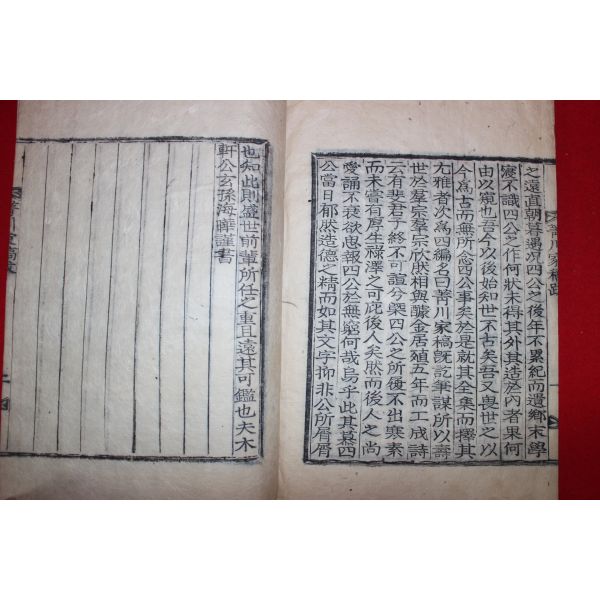 之遠直朝暮遇況四公之後年不累紀而遺鄉末學
癡不識四公之作何狀未得其外其造於內者果何
由以窺也吾今以後始知世不古矣吾又畏世之以
今爲古而無所念四公事矣於是就其全集而擇其
尤雅者次爲四編名曰菁川家稿旣訖筆謀所以壽
世於羣宗羣宗欣肰相與醵金居殖五年而工成詩
云有斐君子終不可諠兮槩四公之所値不出寒素
而未嘗有厚生祿澤之可庇後人矣然而後人之尚
愛誦不衰欲思報四公於無窮何哉烏乎此其慕四
公當日郁肰造德之精而如其文字抑非公所屑屑
也知此則盛世前輩所任之重且遠其可鑑也夫木
軒公玄孫海曄謹書
菁川家稿跋